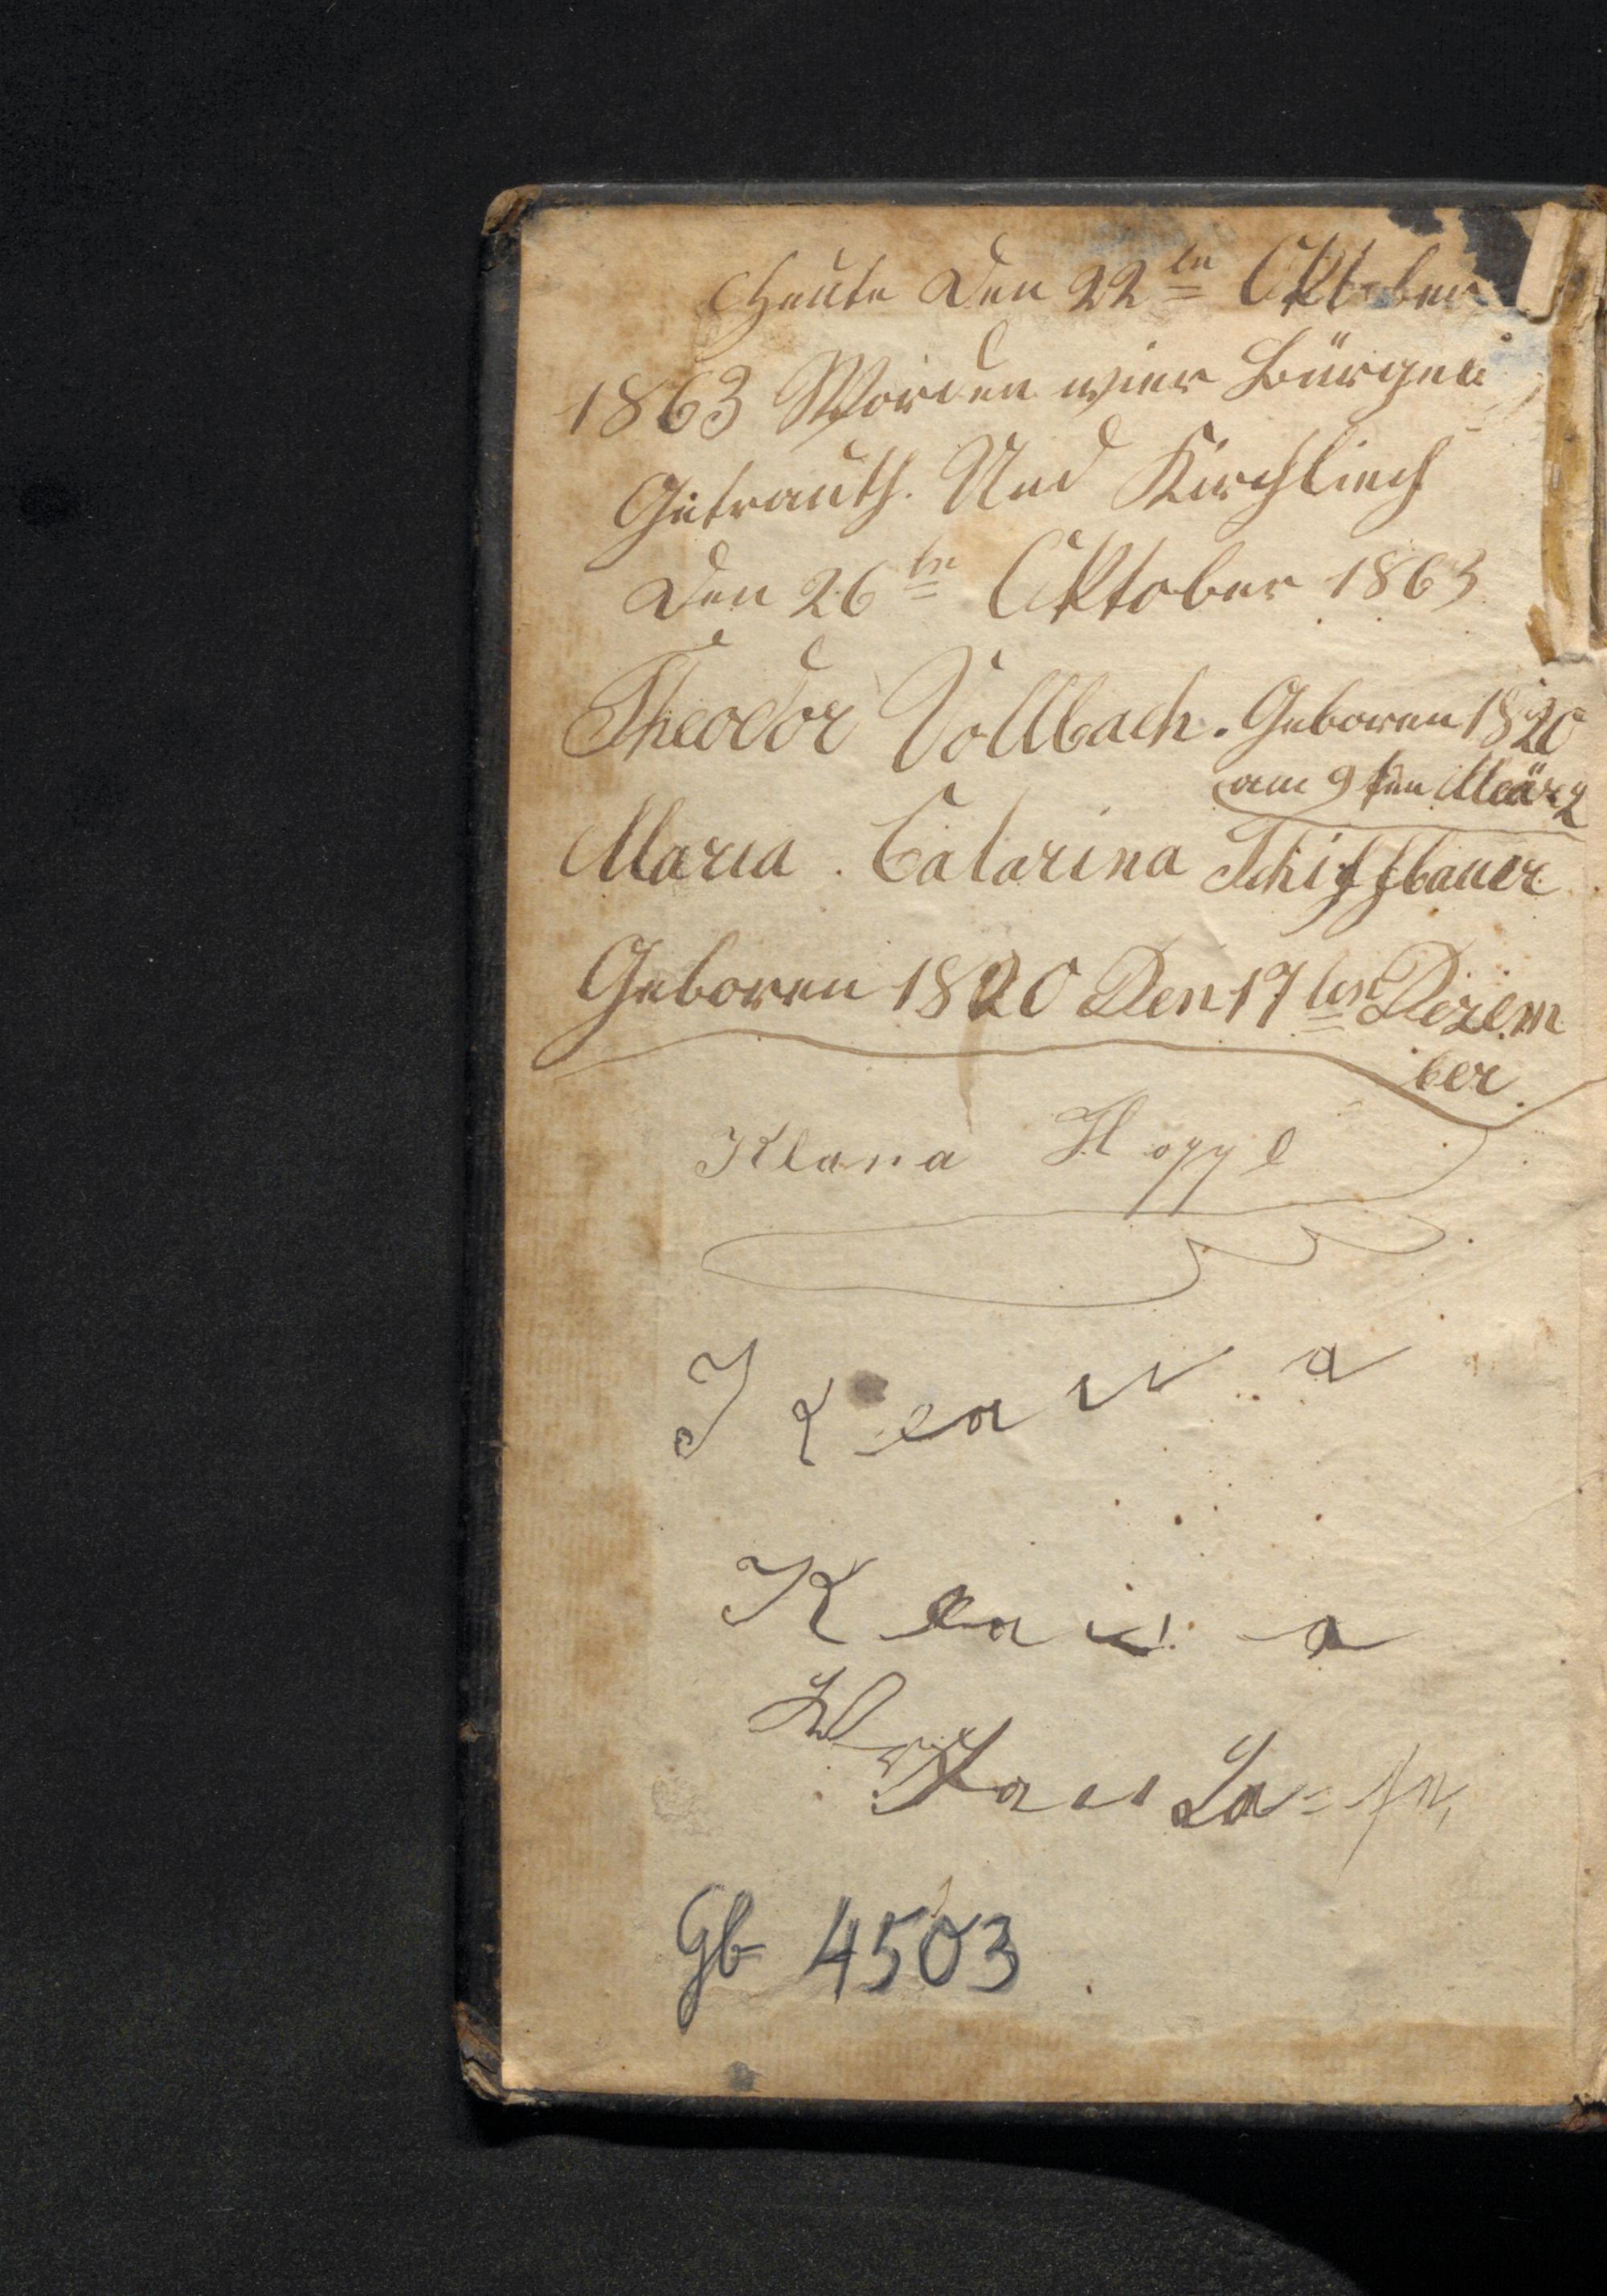 Heute den 22ten Oktober
1863 Worden wier Bürgerl
Getrauth. Und Kirchliech
den 26ten Oktober 1863
Theodor Vollbach. Geboren 1820
am 9ten Märtz
Maria. Catarina Schiffbauer
Geboren 1820 Den 17ten Dezem
ber.
Klara
Klara
Gb 4503